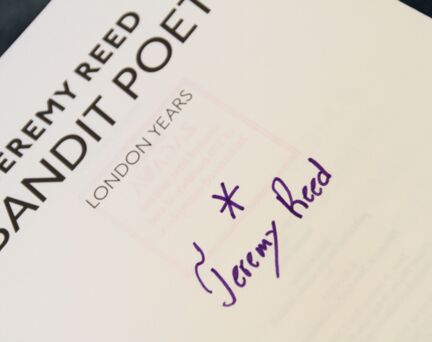 JEREMY REED
BANDIT POET
LONDON YEARS
*
Jeremy Reed